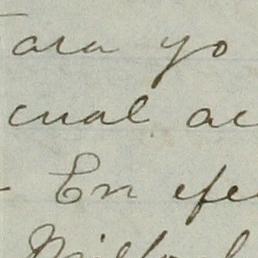 para yo
cual ac
En efe